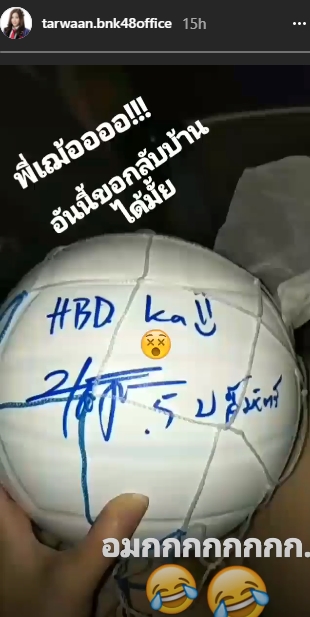 tarwaan.bnk48office 15h
พี่เฌ้ออออ!!!
อันนี้ขอกลับบ้าน
ได้มั้ย
HBD ka
อมกกกกกกกก.